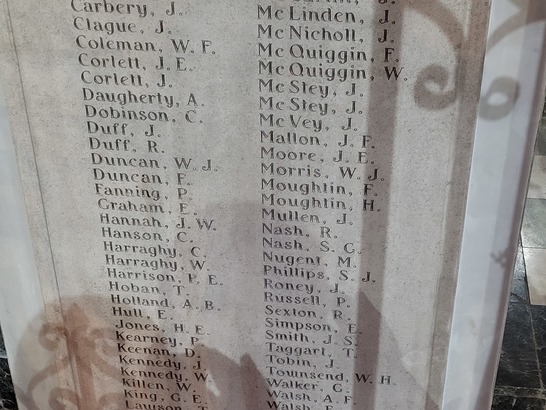 Carbery, J.
Clague, J.
Coleman, W. F.
Corlett, J. E.
Corlett, J.
Daugherty, A.
Dobinson, C.
Duff, J.
Duff, R.
Duncan, W. J.
Duncan, E.
Fanning, P.
Graham, E.
Hannah, J. W.
Hanson, C.
Harraghy, C.
Harraghy, W.
Harrison, P. E.
Hoban, T.
Holland, A. B.
Hull, E.
Jones, H. E.
Kearney, P.
Keenan, D.
Kennedy, J.
Kennedy, W.
Killen, W.
King, G. E.
Lawson, T.
McLinden, J.
McNicholl, J.
McQuiggin, F.
McQuiggin, W.
McStey, J.
McStey, J.
McVey, J.
Mallon, J. F.
Moore, J. E.
Morris, W. J.
Moughtin, F.
Moughtin, H.
Mullen, J.
Nash, R.
Nash, S. C.
Nugent, M.
Phillips, S. J.
Roney, J.
Russell, P.
Sexton, R.
Simpson, E.
Smith, J. S.
Taggart, T.
Tobin, J.
Townsend, W. H.
Walker, C.
Walsh, A. F.
Walsh, E.